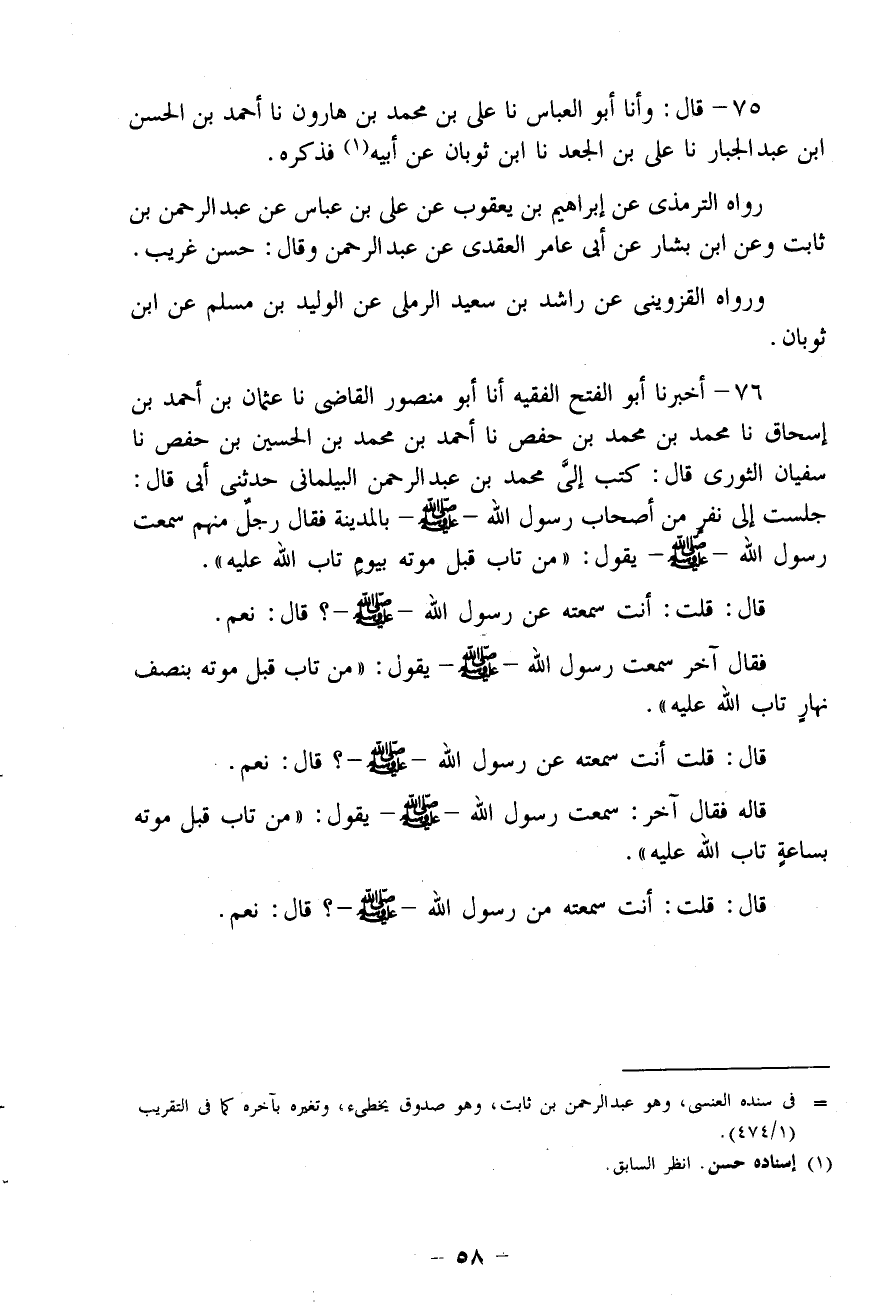 ٧٥ – قال : وأنا أبو العباس نا على بن محمد بن هارون نا أحمد بن الحسن
ابن عبدالجبار نا على بن الجعد نا ابن ثوبان عن أبيه(١) فذكره .
رواه الترمذى عن إبراهيم بن يعقوب عن على بن عباس عن عبدالرحمن بن
ثابت وعن ابن بشار عن أبى عامر العقدى عن عبدالرحمن وقال : حسن غريب .
ورواه القزوينى عن راشد بن سعيد الرملى عن الوليد بن مسلم عن ابن
ثوبان .
٧٦ – أخبرنا أبو الفتح الفقيه أنا أبو منصور القاضى نا عثمان بن أحمد بن
إسحاق نا محمد بن محمد بن حفص نا أحمد بن محمد بن الحسين بن حفص نا
سفيان الثورى قال : كتب إلىَّ محمد بن عبدالرحمن البيلمانى حدثنى أبى قال :
جلست إلى نفرٍ من أصحاب رسول الله – ﷺ – بالمدينة فقال رجلٌ منهم سمعت
رسول الله – ﷺ – يقول : « من تاب قبل موته بيومٍ تاب الله عليه » .
قال : قلت : أنت سمعته عن رسول الله – ﷺ – ؟ قال : نعم .
فقال آخر سمعت رسول الله – ﷺ – يقول : « من تاب قبل موته بنصف
نهارٍ تاب الله عليه » .
قال : قلت أنت سمعته عن رسول الله – ﷺ – ؟ قال : نعم .
قاله فقال آخر : سمعت رسول الله – ﷺ – يقول : « من تاب قبل موته
بساعةٍ تاب الله عليه » .
قال : قلت : أنت سمعته من رسول الله – ﷺ – ؟ قال : نعم .
= فى سنده العنسى ، وهو عبدالرحمن بن ثابت ، وهو صدوق يخطىء ، وتغيره بآخره كما فى التقريب
(٤٧٤/١) .
(١) إسناده حسن . انظر السابق .
– ٥٨ –